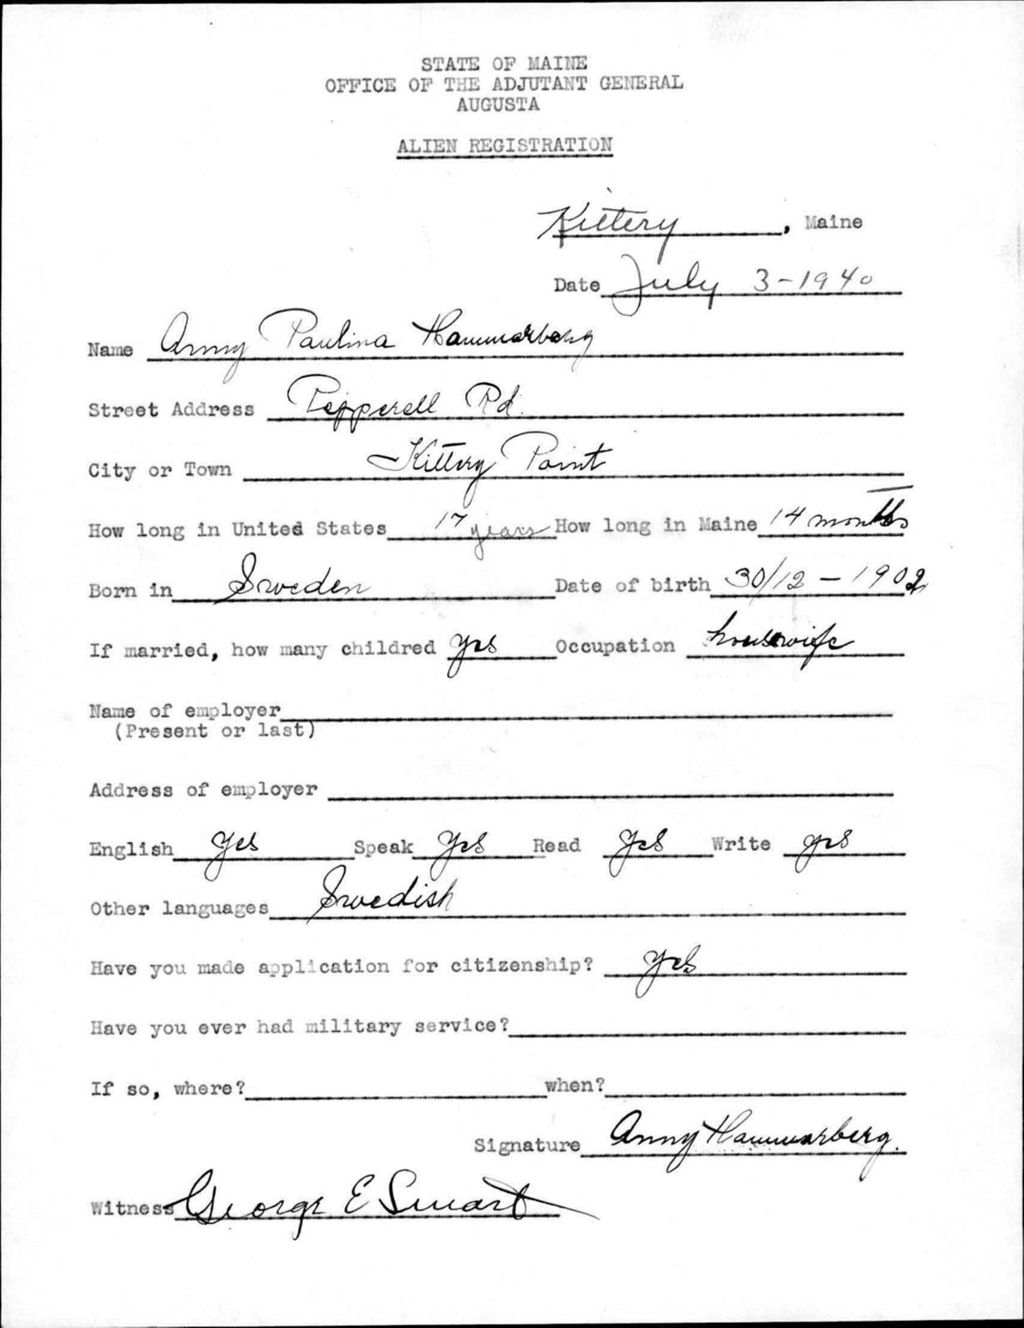 STATE OF MAINE
OFFICE OF THE ADJUTANT GENERAL
AUGUSTA
ALIEN REGISTRATION
Kittery, Maine
Date July 3-1940
Name Anny Paulina Hammarberg
Street Address Pepperell Rd.
City or Town Kittery Point
How long in United States 17 years How long in Maine 14 months
Born in Sweden Date of birth 30/12 - 1902
If married, how many childred yes Occupation housewife
Name of employer
(Present or last)
Address of employer
English yes Speak yes Read yes Write yes
Other languages Swedish
Have you made application for citizenship? yes
Have you ever had military service?
If so, where? when?
Signature Anny Hammarberg.
Witness George E Smart